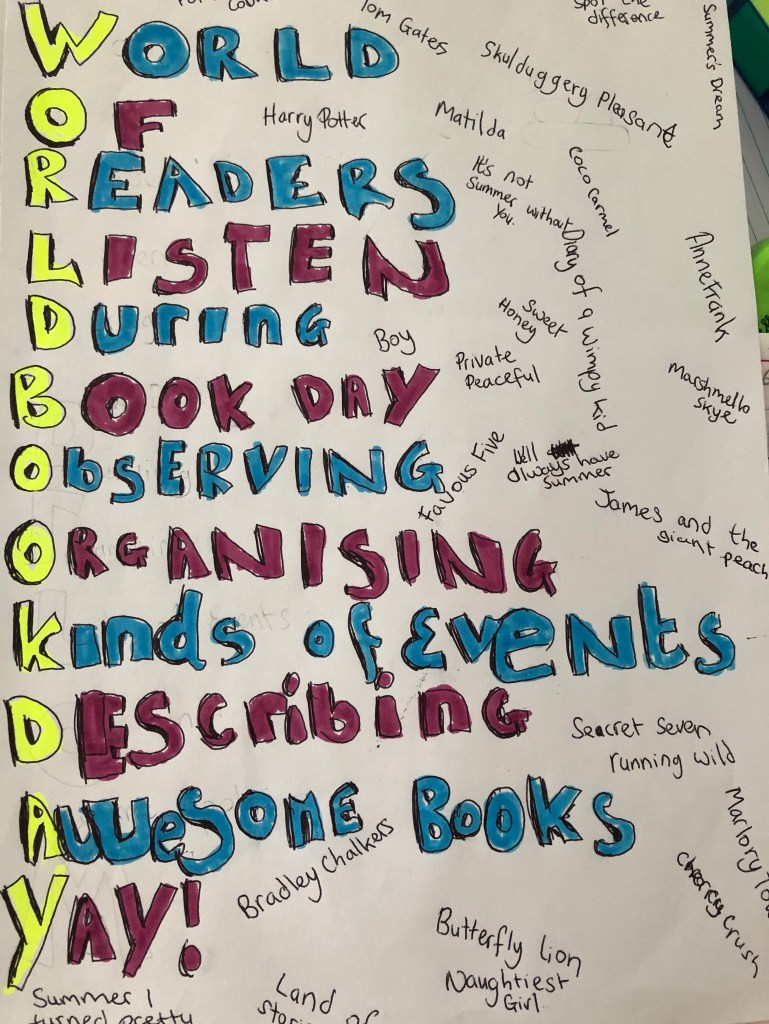 spot the
difference
Tom Gates
Summer's Dream
WORLD
Skulduggery Pleasant
OF
Harry Potter
Matilda
READERS
It's not
Summer without
You.
Coco Carmel
LISTEN
Diary of a Wimpy Kid
Anne Frank
DURING
Sweet
Honey
Boy
Private
Peaceful
Marshmello
Skye
BOOK DAY
ObSERVING
Favous Five
Well
always have
summer
ORGANISING
James and the
giant peach
Kinds of EvENts
DESCribing
Seacret Seven
running wild
AWESOME BOOKS
Marlory
Bradley Chalkers
cherry crush
YAY!
Butterfly lion
Naughtiest
Girl
Summer I
turned pretty
Land of